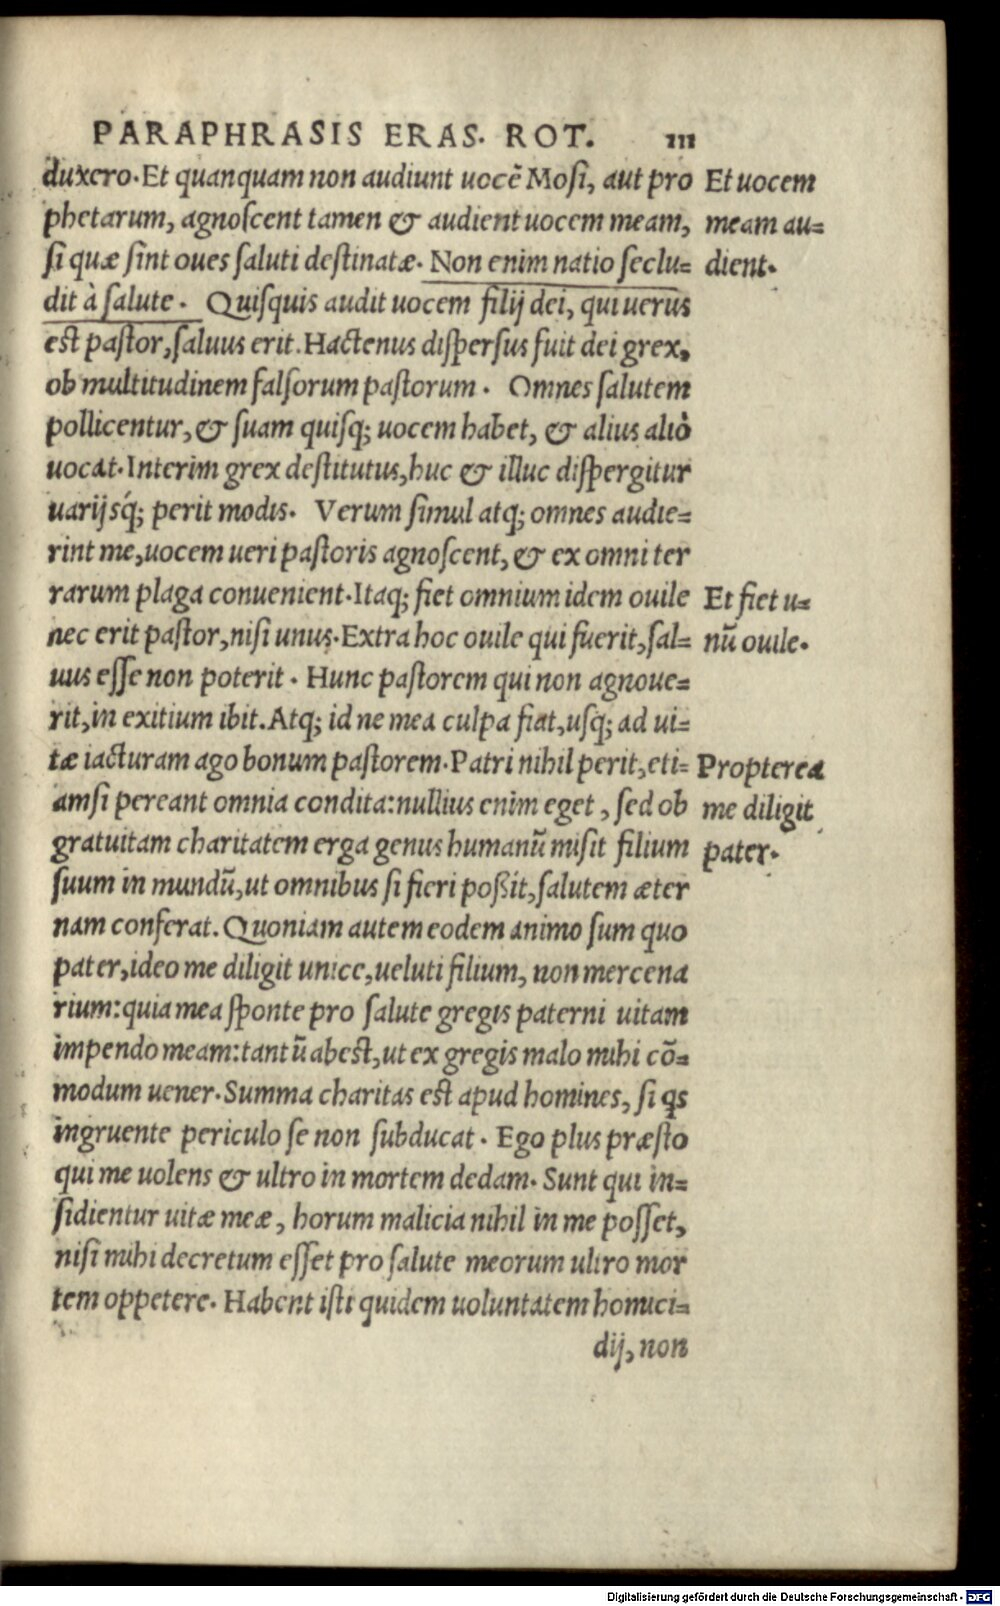 PARAPHRASIS ERAS. ROT. 111
duxero. Et quanquam non audiunt uocẽ Mosi, aut pro
phetarum, agnoscent tamen & audient uocem meam,
si quæ sint oues saluti destinatæ. Non enim natio seclu=
dit à salute. Quisquis audit uocem filij dei, qui uerus
est pastor, saluus erit. Hactenus dispersus fuit dei grex,
ob multitudinem falsorum pastorum. Omnes salutem
pollicentur, & suam quisq; uocem habet, & alius aliò
uocat. Interim grex destitutus, huc & illuc dispergitur
uarijsq́; perit modis. Verum simul atq; omnes audie=
rint me, uocem ueri pastoris agnoscent, & ex omni ter
rarum plaga conuenient. Itaq; fiet omnium idem ouile
nec erit pastor, nisi unus. Extra hoc ouile qui fuerit, sal=
uus esse non poterit. Hunc pastorem qui non agnoue=
rit, in exitium ibit. Atq; id ne mea culpa fiat, usq; ad ui=
tæ iacturam ago bonum pastorem. Patri nihil perit, eti=
amsi pereant omnia condita: nullius enim eget, sed ob
gratuitam charitatem erga genus humanũ misit filium
suum in mundũ, ut omnibus si fieri poßit, salutem æter
nam conferat. Quoniam autem eodem animo sum quo
pater, ideo me diligit unice, ueluti filium, non mercena
rium: quia mea sponte pro salute gregis paterni uitam
impendo meam: tantũ abest, ut ex gregis malo mihi cõ=
modum uener. Summa charitas est apud homines, si qs
ingruente periculo se non subducat. Ego plus præsto
qui me uolens & ultro in mortem dedam. Sunt qui in=
sidientur uitæ meæ, horum malicia nihil in me posset,
nisi mihi decretum esset pro salute meorum ultro mor
tem oppetere. Habent isti quidem uoluntatem homici=
dij, non
Et uocem
meam au=
dient.
Et fiet u=
nũ ouile.
Propterea
me diligit
pater.
Digitalisierung gefördert durch die Deutsche Forschungsgemeinschaft - DFG